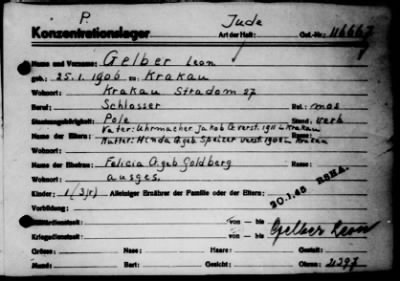 P. Jude
Konzentrationslager Art der Haft: Gef.-Nr.: 116667
Name und Vorname: Gelber Leon
geb.: 25.1.1906 zu: Krakau
Wohnort: Krakau Stradom 27
Beruf: Schlosser Rel.: mos
Staatsangehörigkeit: Pole Stand: verh
Name der Eltern: Vater: Uhrmacher Jakob G. verst. 1911 in Krakau Rasse:
Wohnort: Mutter: Hinda G. geb Speizer verst. in Krakau
Name der Ehefrau: Felicia G. geb Goldberg Rasse:
Wohnort: ausges.
Kinder: 1 (3j) Alleiniger Ernährer der Familie oder der Eltern:
Vorbildung: 20.1.45 RSHA.
Militärdienstzeit: von — bis
Kriegsdienstzeit: von — bis Gelber Leon
Grösse: Nase: Haare: Gestalt:
Mund: Bart: Gesicht: Ohren: 21297